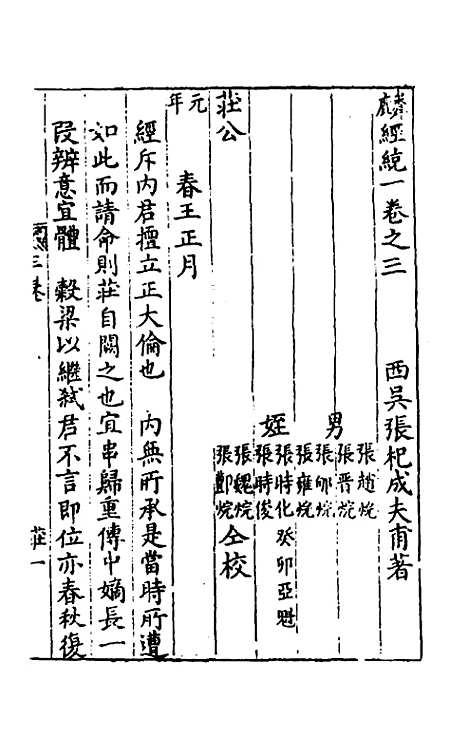 麟經統一卷之三
西吳張杞成夫甫著
男
張趙烷
張晋烷
張邠烷
張雍烷
姪
張時化 癸卯亞魁
張時俊
張魏烷
張鄷烷
仝校
莊公
元年
春王正月
經斥內君擅立正大倫也 內無所承是當時所遭
如此而請命則莊自闕之也宜串歸重傳中嫡長一
段辨意宜體 穀梁以繼弒君不言即位亦春秋復
三卷
莊一